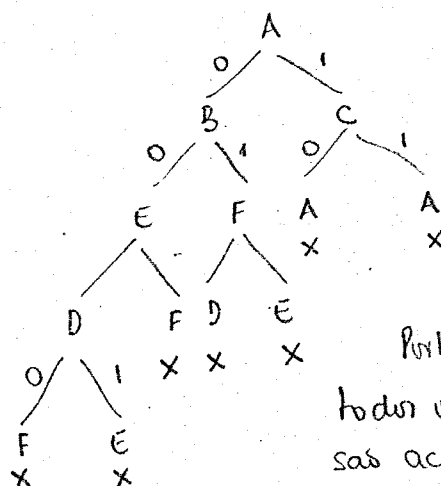 A
0 1
B C
0 1 0 1
E F A A
X X
D F D E
X X X
0 1
F E
X X
todos
são ac